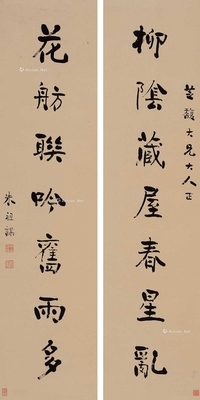 芝馥大兄大人正
柳陰藏屋春星亂
花舫聯吟舊雨多
朱祖謀